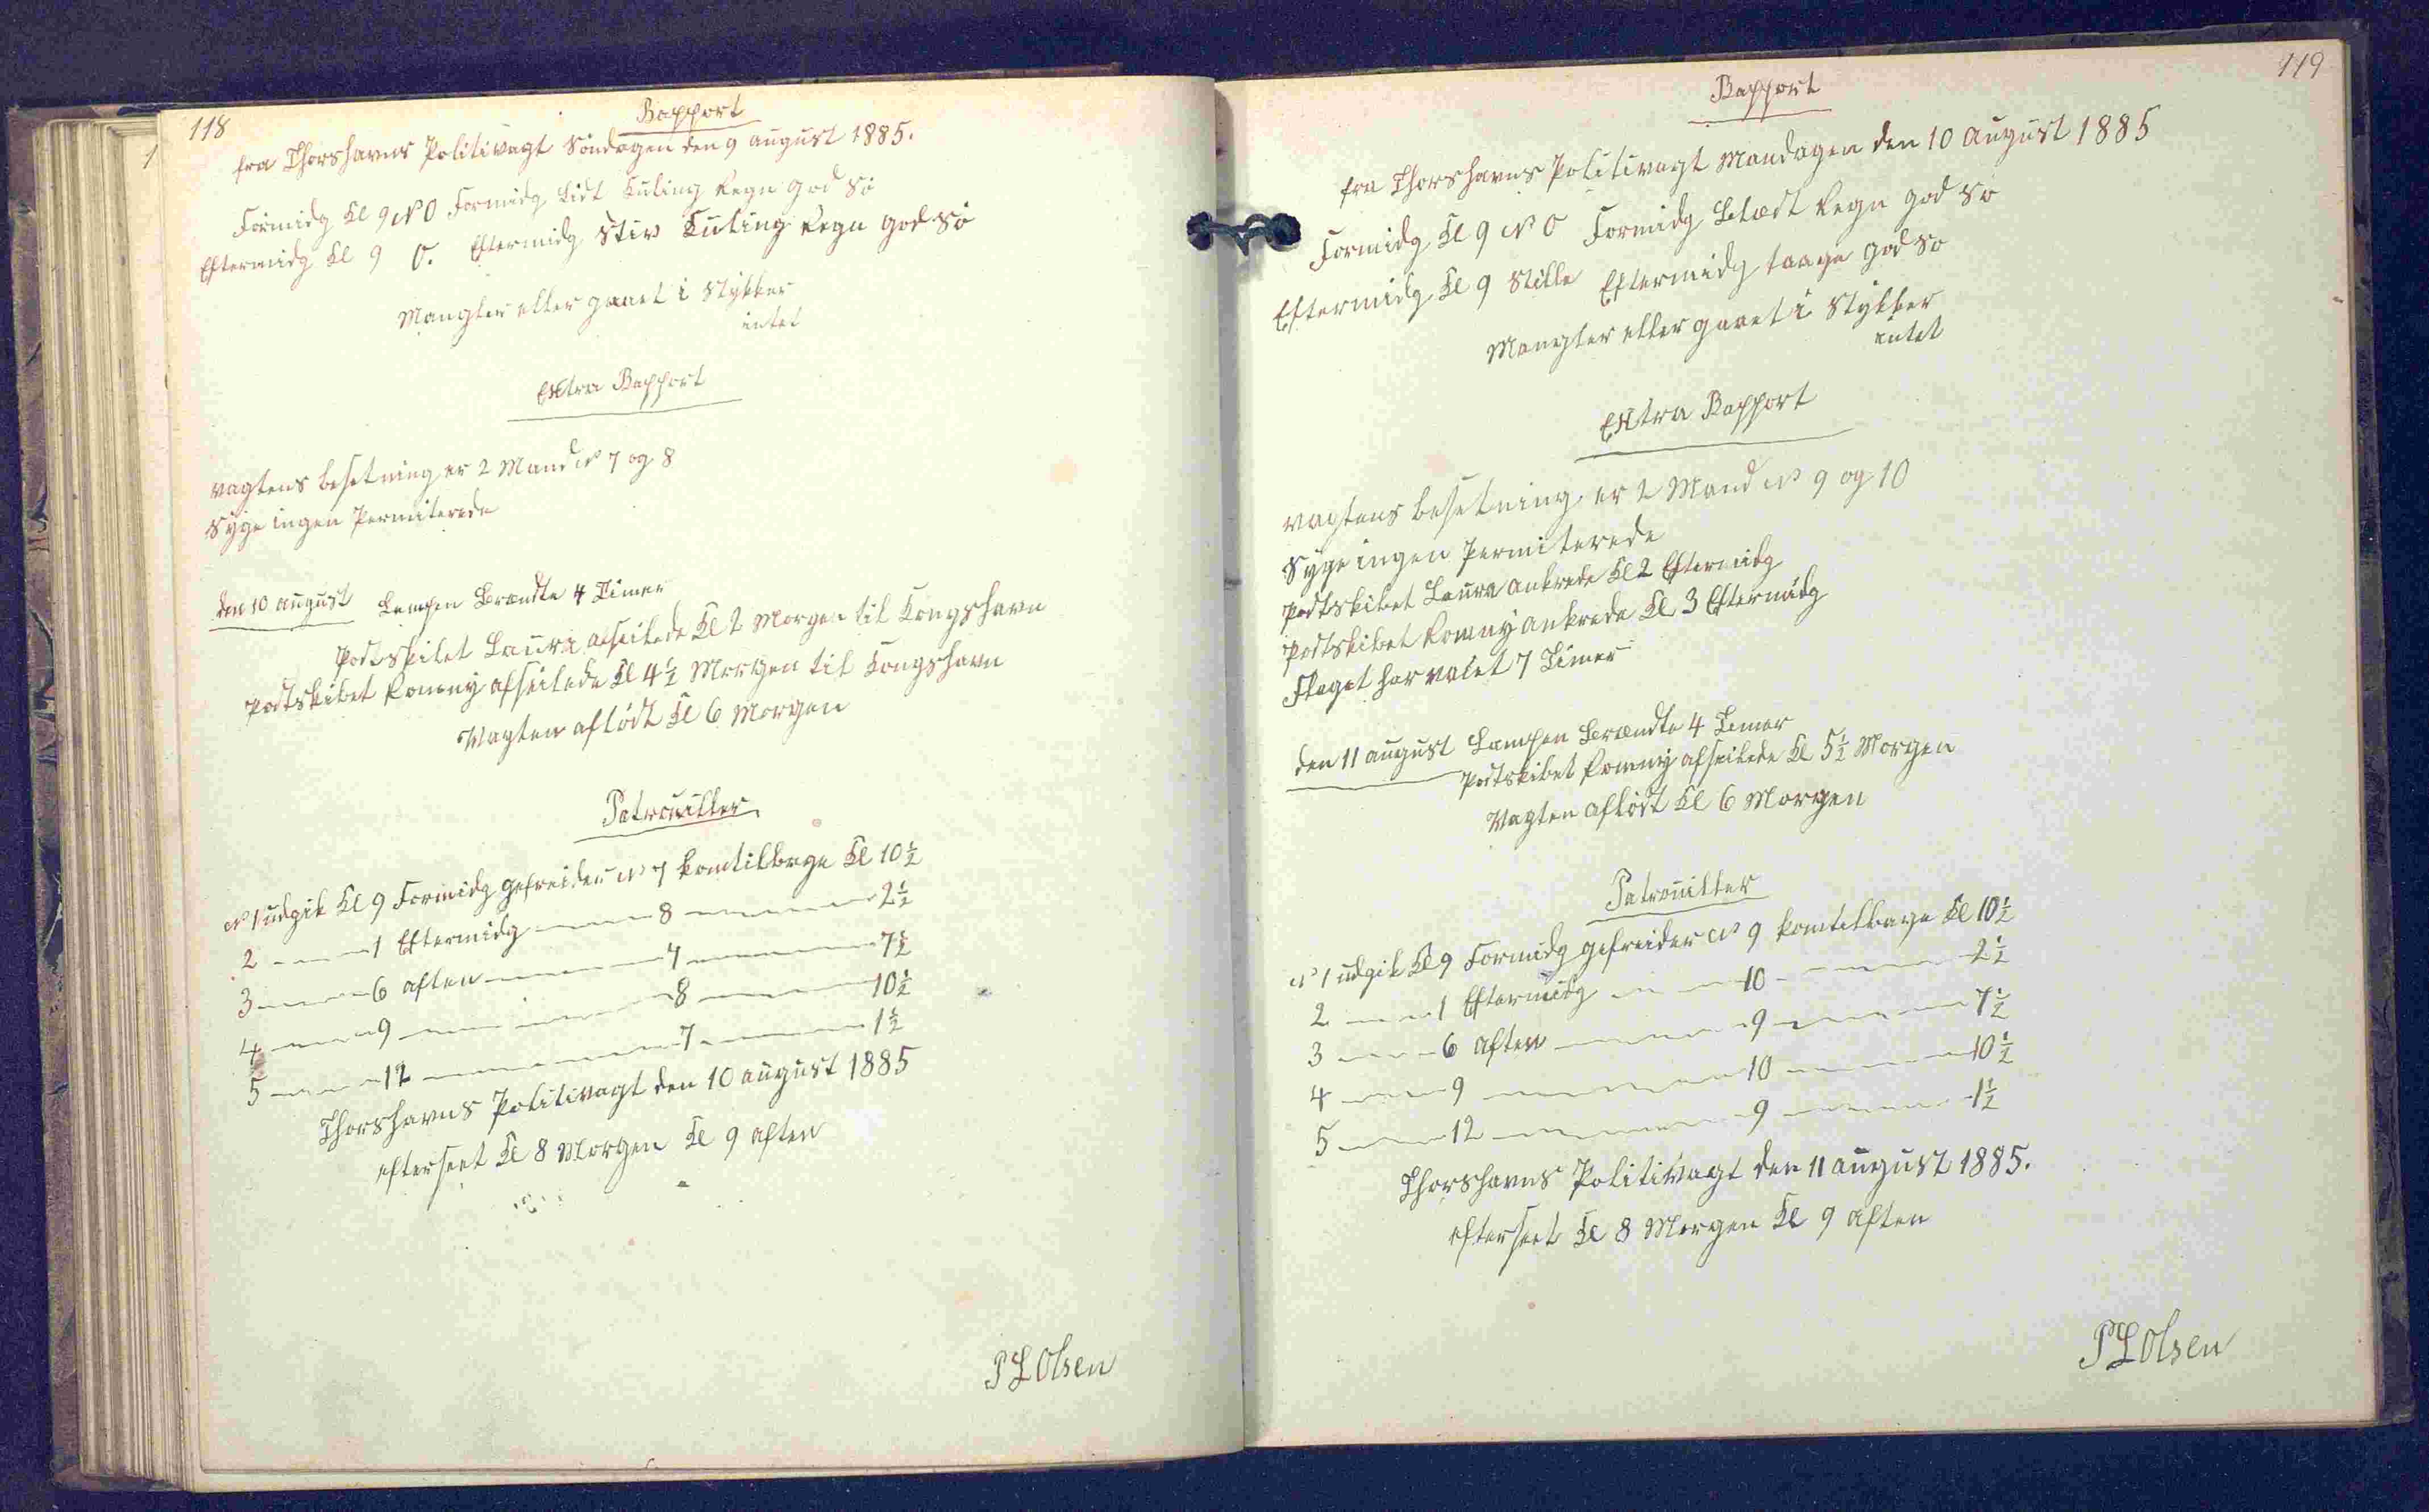 118
Rapport
fra Thorshavns Politivagt Söndagen den 9 august 1885.
Formidg Kl 9 NO Formidg Lidt Kuling Regn god Sö
Eftermidg Kl 9 O. Eftermidg Stiv Kuling Regn god Sö
Mangler eller gaaet i Stykker
intet
Extra Rapport
vagtens besetning er 2 Mand No 7 og 8
Syge ingen Permiterede
den 10 august Lampen Brændte 4 Timer
Postskibet Laura afseilede Kl 2 Morgen til Kongshavn
Postskibet Romny afseilede Kl 4½ Morgen til Kongshavn
Vagten aflöst Kl 6 Morgen
Patrouiller
No 1 udgik Kl 9 Formidg gefreider No 7 komtilbage Kl 10½
2 — 1 Eftermidg — 8 — 2½
3 — 6 aften — 7 — 7½
4 — 9 — 8 — 10½
5 — 12 — 7 — 1½
Thorshavns Politivagt den 10 august 1885
efterseet Kl 8 Morgen Kl 9 aften
PLOlsen
119
Rapport
fra Thorshavns Politivagt Mandagen den 10 august 1885
Formidg Kl 9 NO Formidg Blæst Regn god Sö
Eftermidg Kl 9 Stille Eftermidg taage god Sö
Mangler eller gaaet i Stykker
intet
Extra Rapport
vagtens besetning er 2 Mand No 9 og 10
Syge ingen Permiterede
Postskibet Laura ankrede Kl 2 Eftermidg
Postskibet Romny ankrede Kl 3 Eftermidg
Flaget har vaiet 7 Timer
den 11 august Lampen Brændte 4 Timer
Postskibet Romny afseilede Kl 5½ Morgen
Vagten aflöst Kl 6 Morgen
Patrouiller
No 1 udgik Kl 9 Formidg gefreider No 9 komtilbage Kl 10½
2 — 1 Eftermidg — 10 — 2½
3 — 6 aften — 9 — 7½
4 — 9 — 10 — 10½
5 — 12 — 9 — 1½
Thorshavns Politivagt den 11 august 1885.
efterseet Kl 8 Morgen Kl 9 aften
PLOlsen